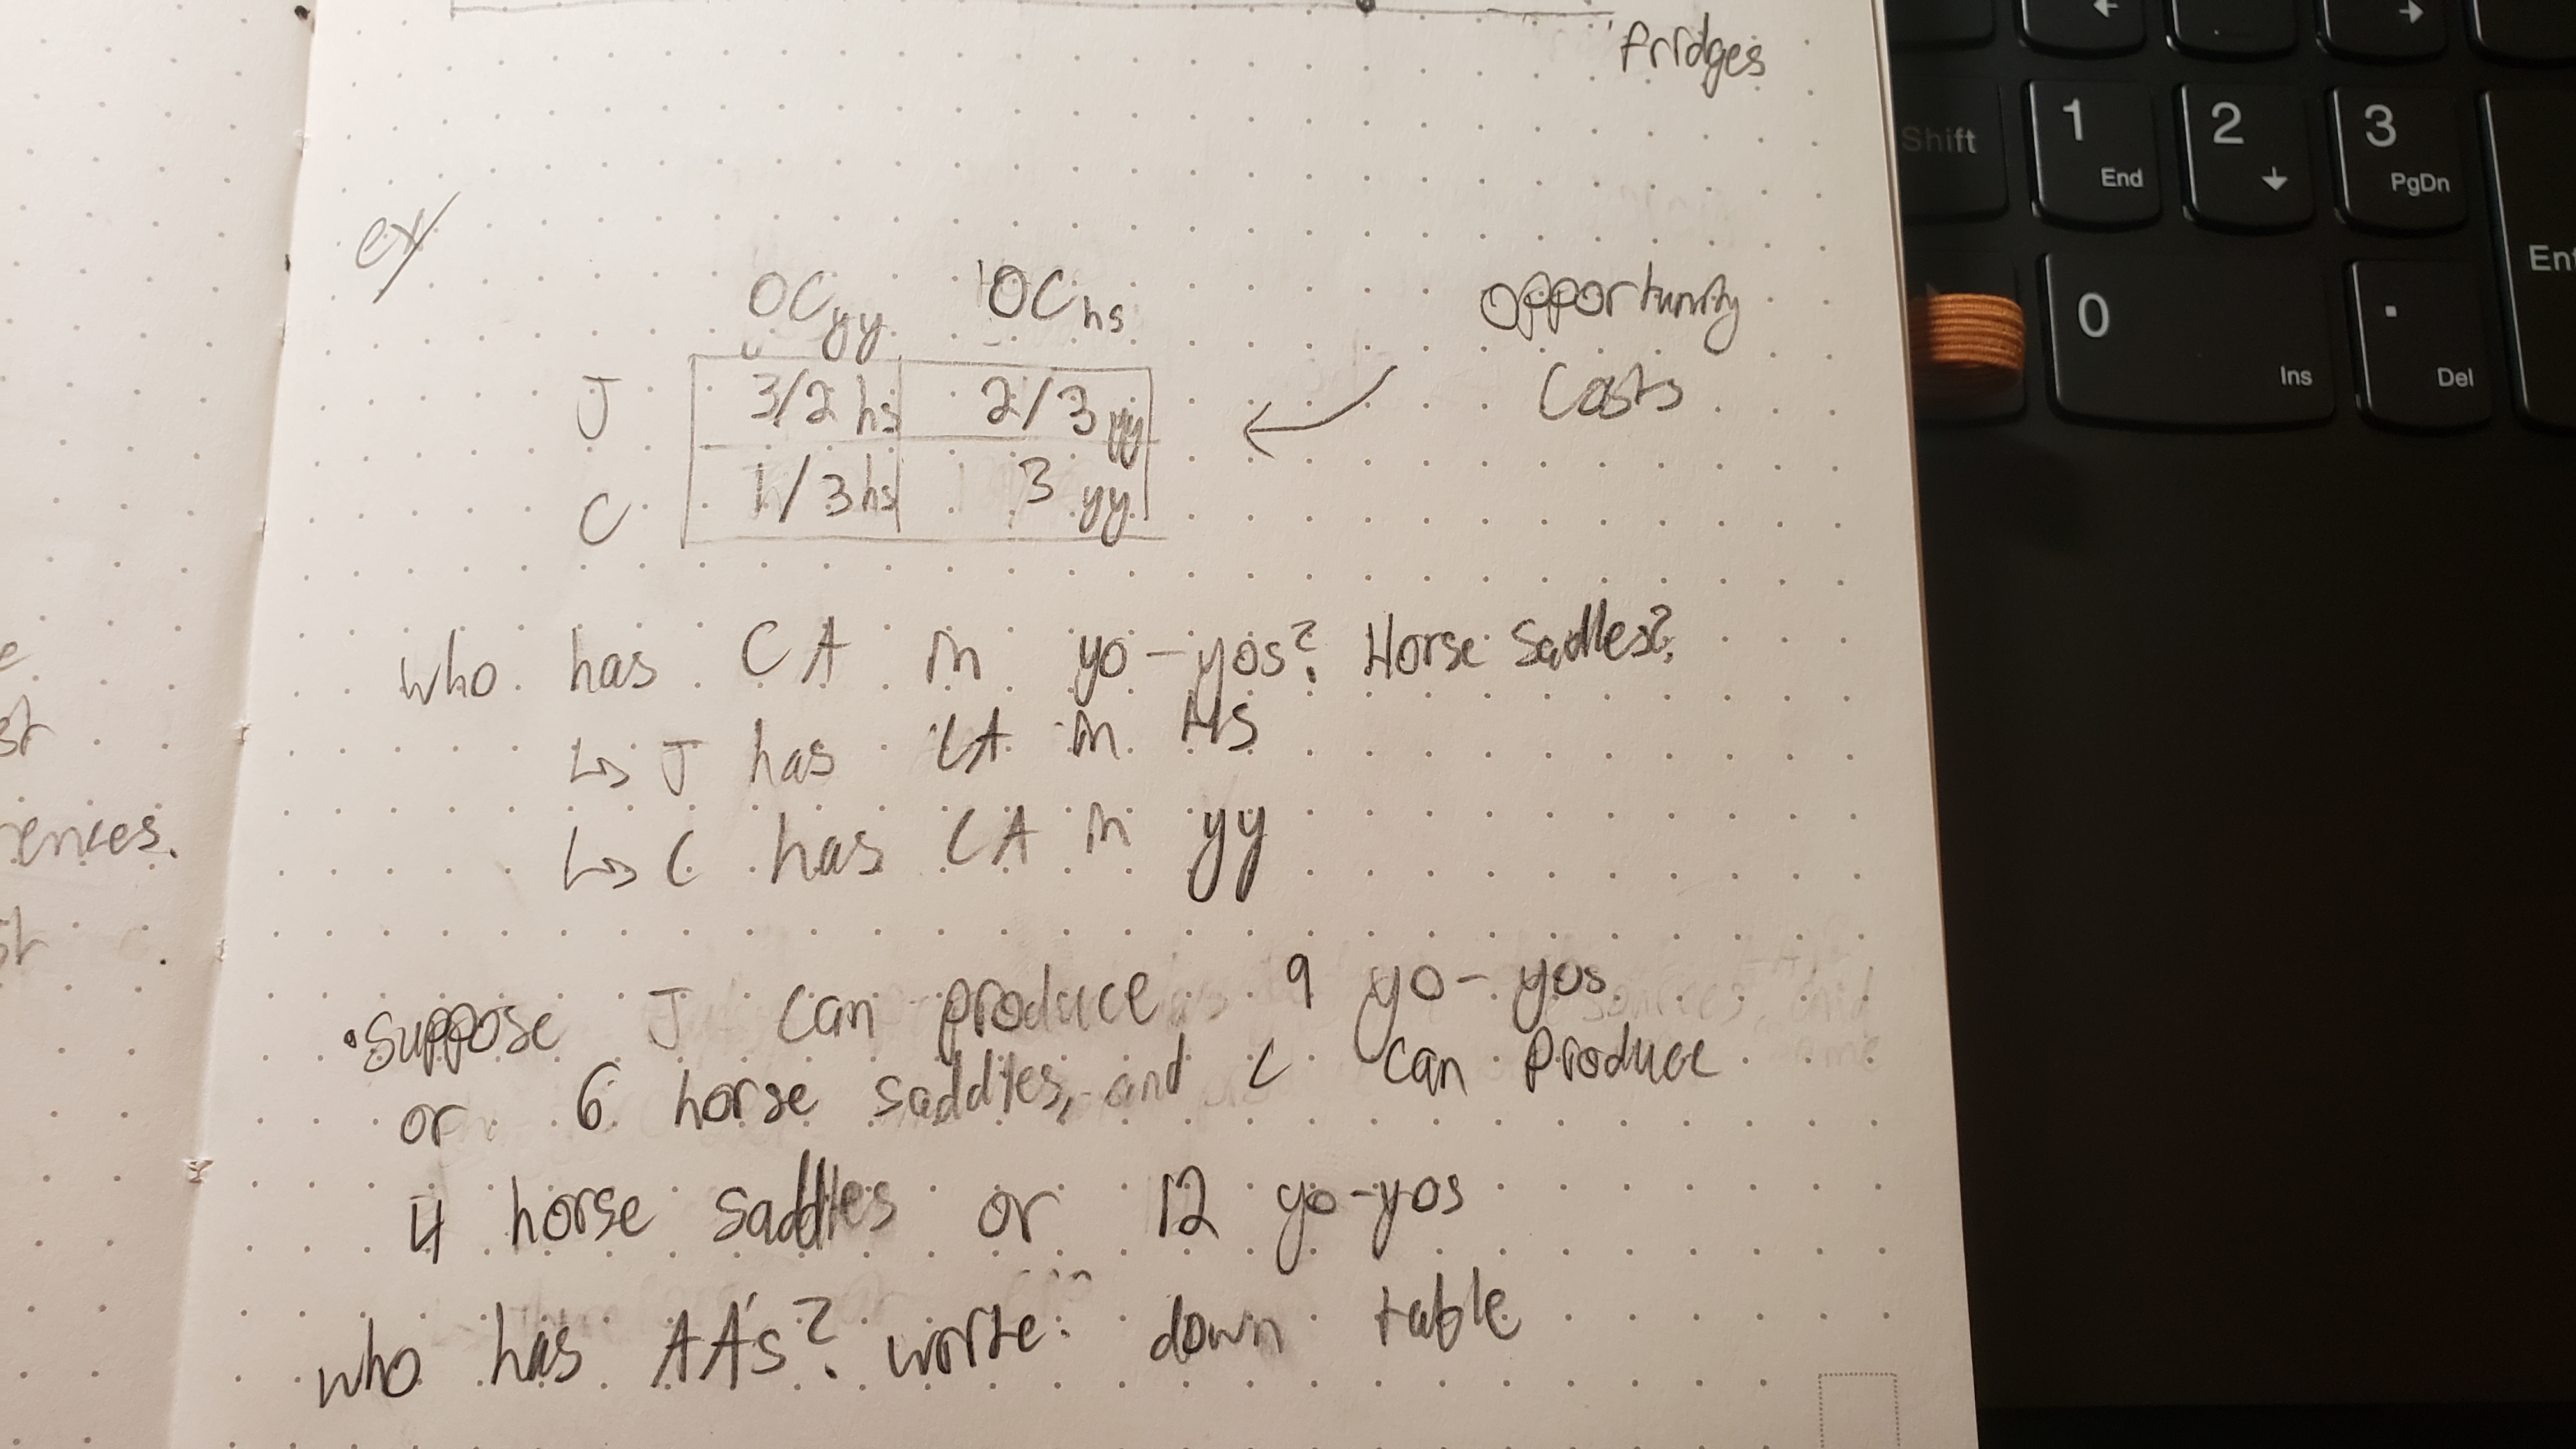 Fridges
ex/
OCyy OChs
opportunity
costs
J 3/2 hs 2/3 yy
C 1/3 hs 3 yy
who has CA in yo-yos? Horse saddles?
↳ J has CA in Hs
↳ C has CA in yy
• Suppose J can produce 9 yo-yos
or 6 horse saddles, and C can produce
4 horse saddles or 12 yo-yos
who has AA's? write down table
ences.
Shift
1
End
2
3
PgDn
0
Ins
.
Del
Ent